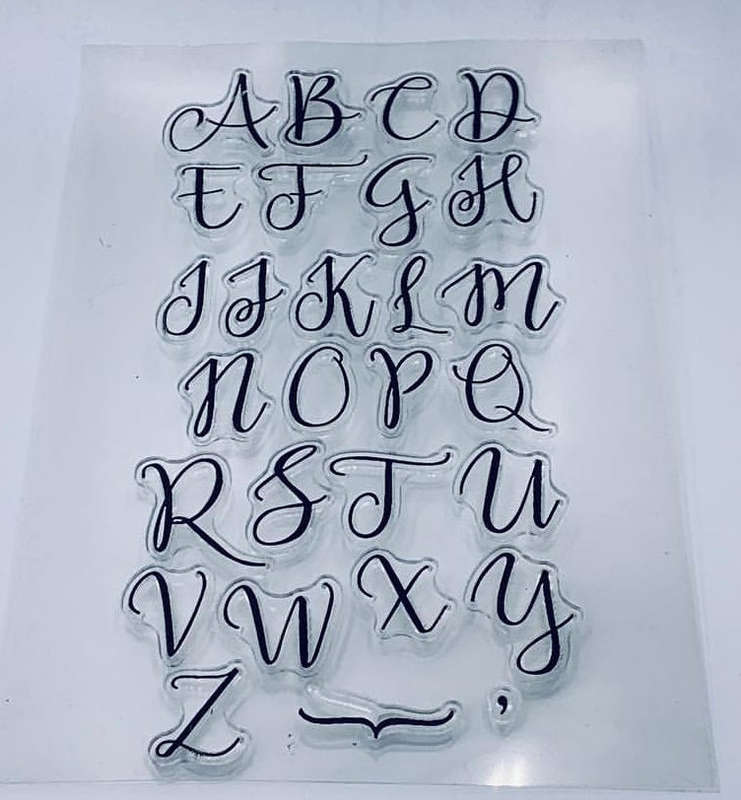 A B C D
E F G H
I J K L M
N O P Q
R S T U
V W X Y
Z } ,